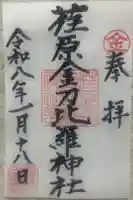 奉拝
金
荏原金刀比羅神社
令和八年一月十八日